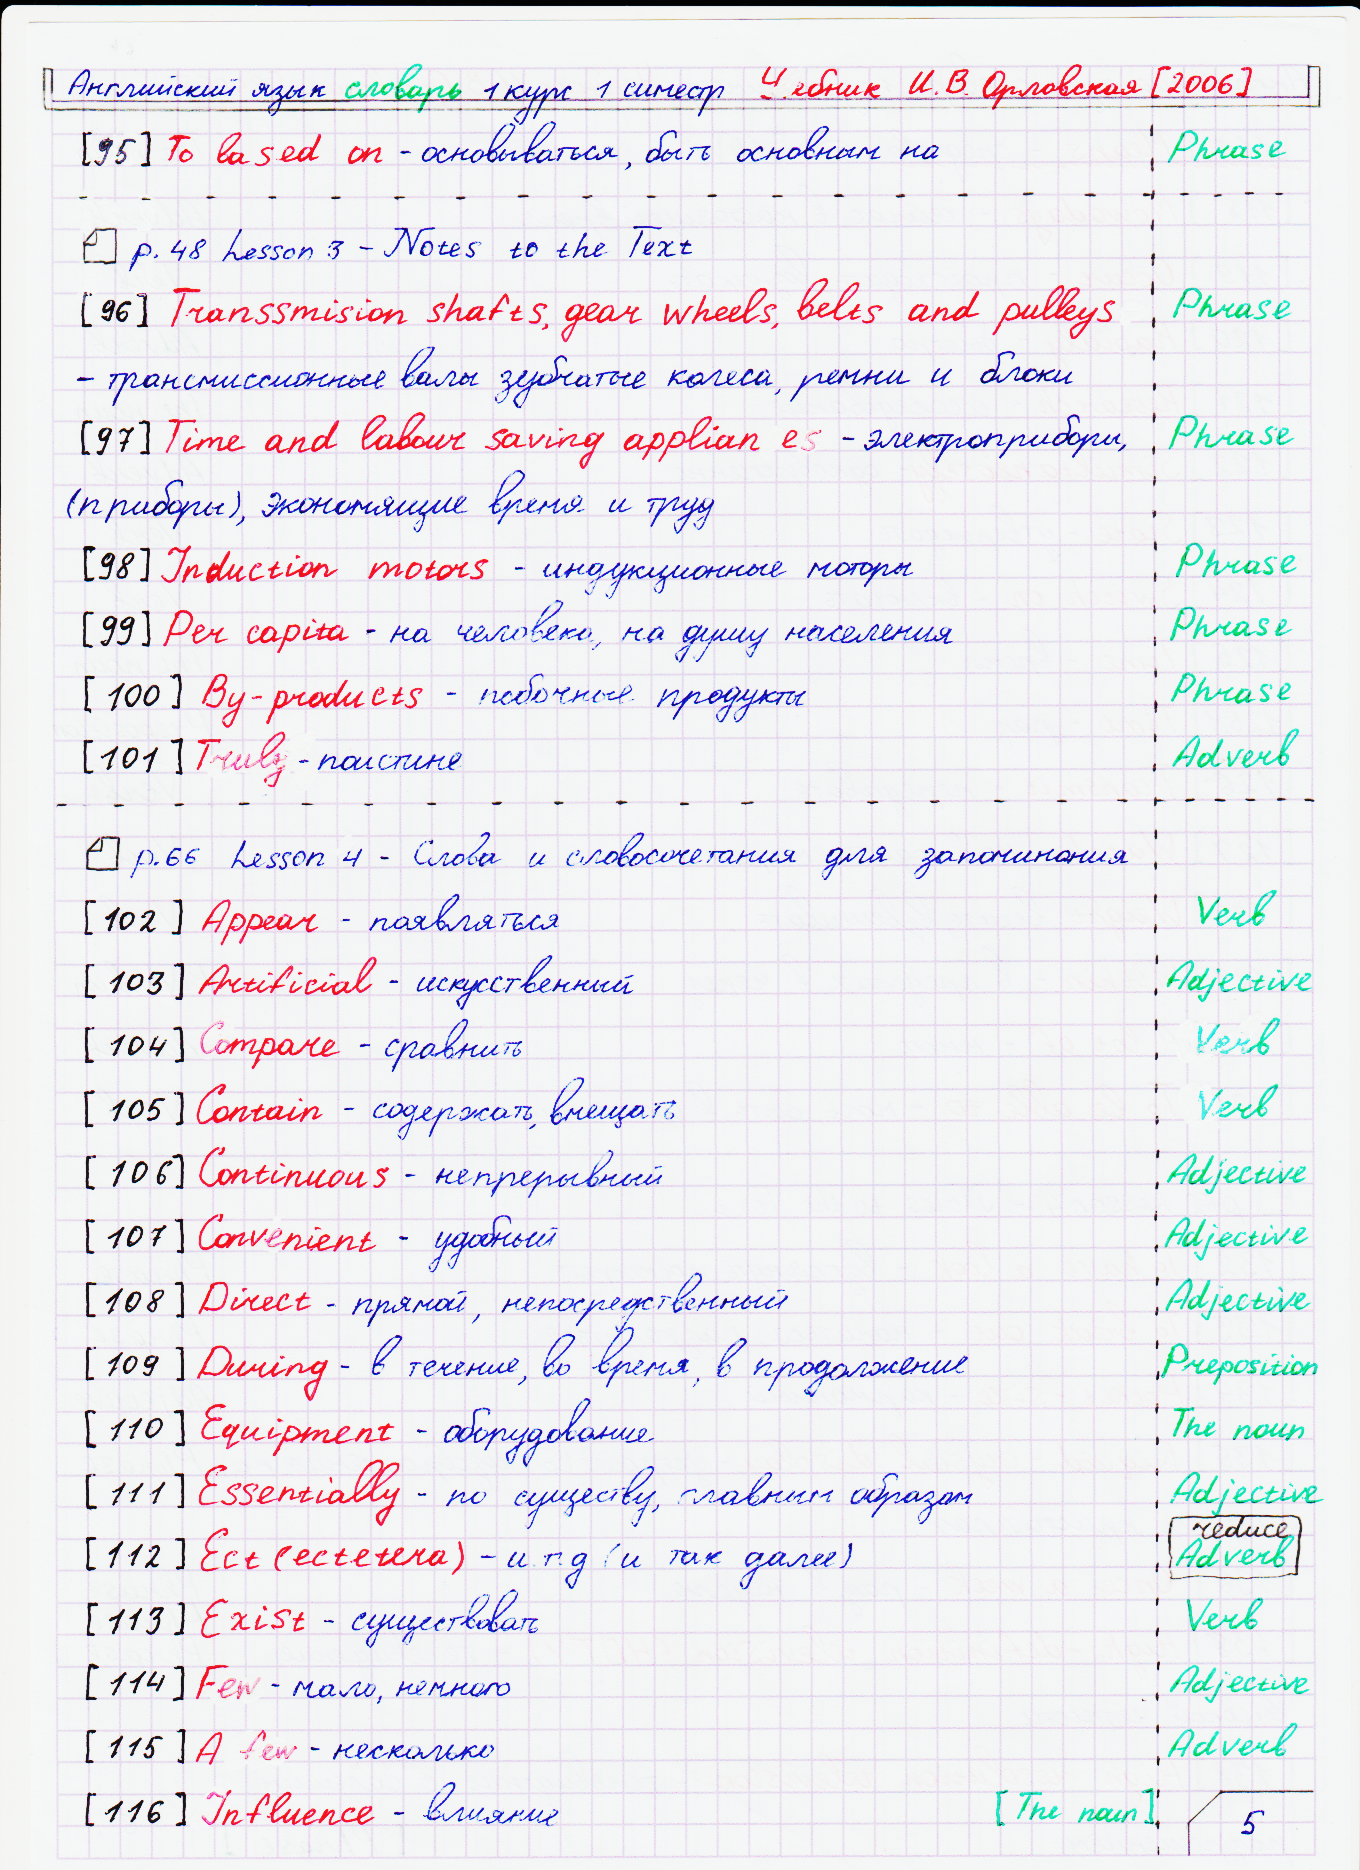 Английский язык словарь 1 курс 1 симестр Учебник И.В. Орловская [2006]
[95] To based on - основываться, быть основным на Phrase
p.48 Lesson 3 - Notes to the Text
[96] Transsmision shafts, gear wheels, belts and pulleys Phrase
- трансмиссионные валы зубчатые колеса, ремни и блоки
[97] Time and labour saving applian es - электроприборы, Phrase
(приборы), экономящие время и труд
[98] Induction motors - индукционные моторы Phrase
[99] Per capita - на человека, на душу населения Phrase
[100] By-products - побочные продукты Phrase
[101] Truly - поистине Adverb
p.66 Lesson 4 - Слова и словосочетания для запоминания
[102] Appear - появляться Verb
[103] Artificial - искусственный Adjective
[104] Compare - сравнить Verb
[105] Contain - содержать, вмещать Verb
[106] Continuous - непрерывный Adjective
[107] Convenient - удобный Adjective
[108] Direct - прямой, непосредственный Adjective
[109] During - в течение, во время, в продолжение Preposition
[110] Equipment - оборудование The noun
[111] Essentially - по существу, главным образом Adjective
reduce
[112] Ect (ectetera) - и т.д (и так далее) Adverb
[113] Exist - существовать Verb
[114] Few - мало, немного Adjective
[115] A few - несколько Adverb
[116] Influence - влияние [The noun]
5